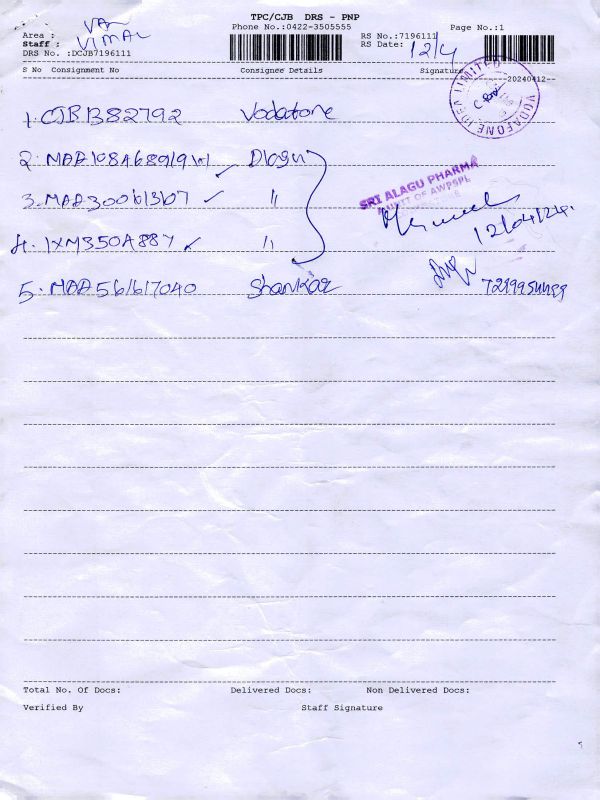 TPC/CJB DRS - PNP
Phone No.:0422-3505555 Page No.:1
Area : VAN
Staff : VIMAL
RS No.:7196111
RS Date: 12/4
DRS No. :DCJB7196111
S No Consignment No Consignee Details Signature
20240412
VODAFONE IDEA LIMITED
1. CJB1382792 Vodafone
2. ✓
SRI ALAGU PHARMA
A UNIT OF AWPSPL
3. MAA300613107 ✓ 〃
12/04/24.
4. IXM350A887 ✓ 〃
5. MAA561617040 Shankar
Total No. Of Docs: Delivered Docs: Non Delivered Docs:
Verified By Staff Signature